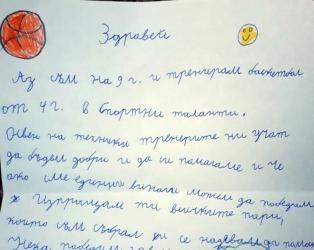 Здравей
Аз съм на 9 г. и тренирам баскетбол
от 4 г. в Спортни таланти.
Освен на техники треньорите ни учат
да бъдем добри и да си помагаме и че
ако сме единни винаги можем да победим
Изпращам ти всичките пари,
които съм събрал и се надявам да помогна
Нека победим